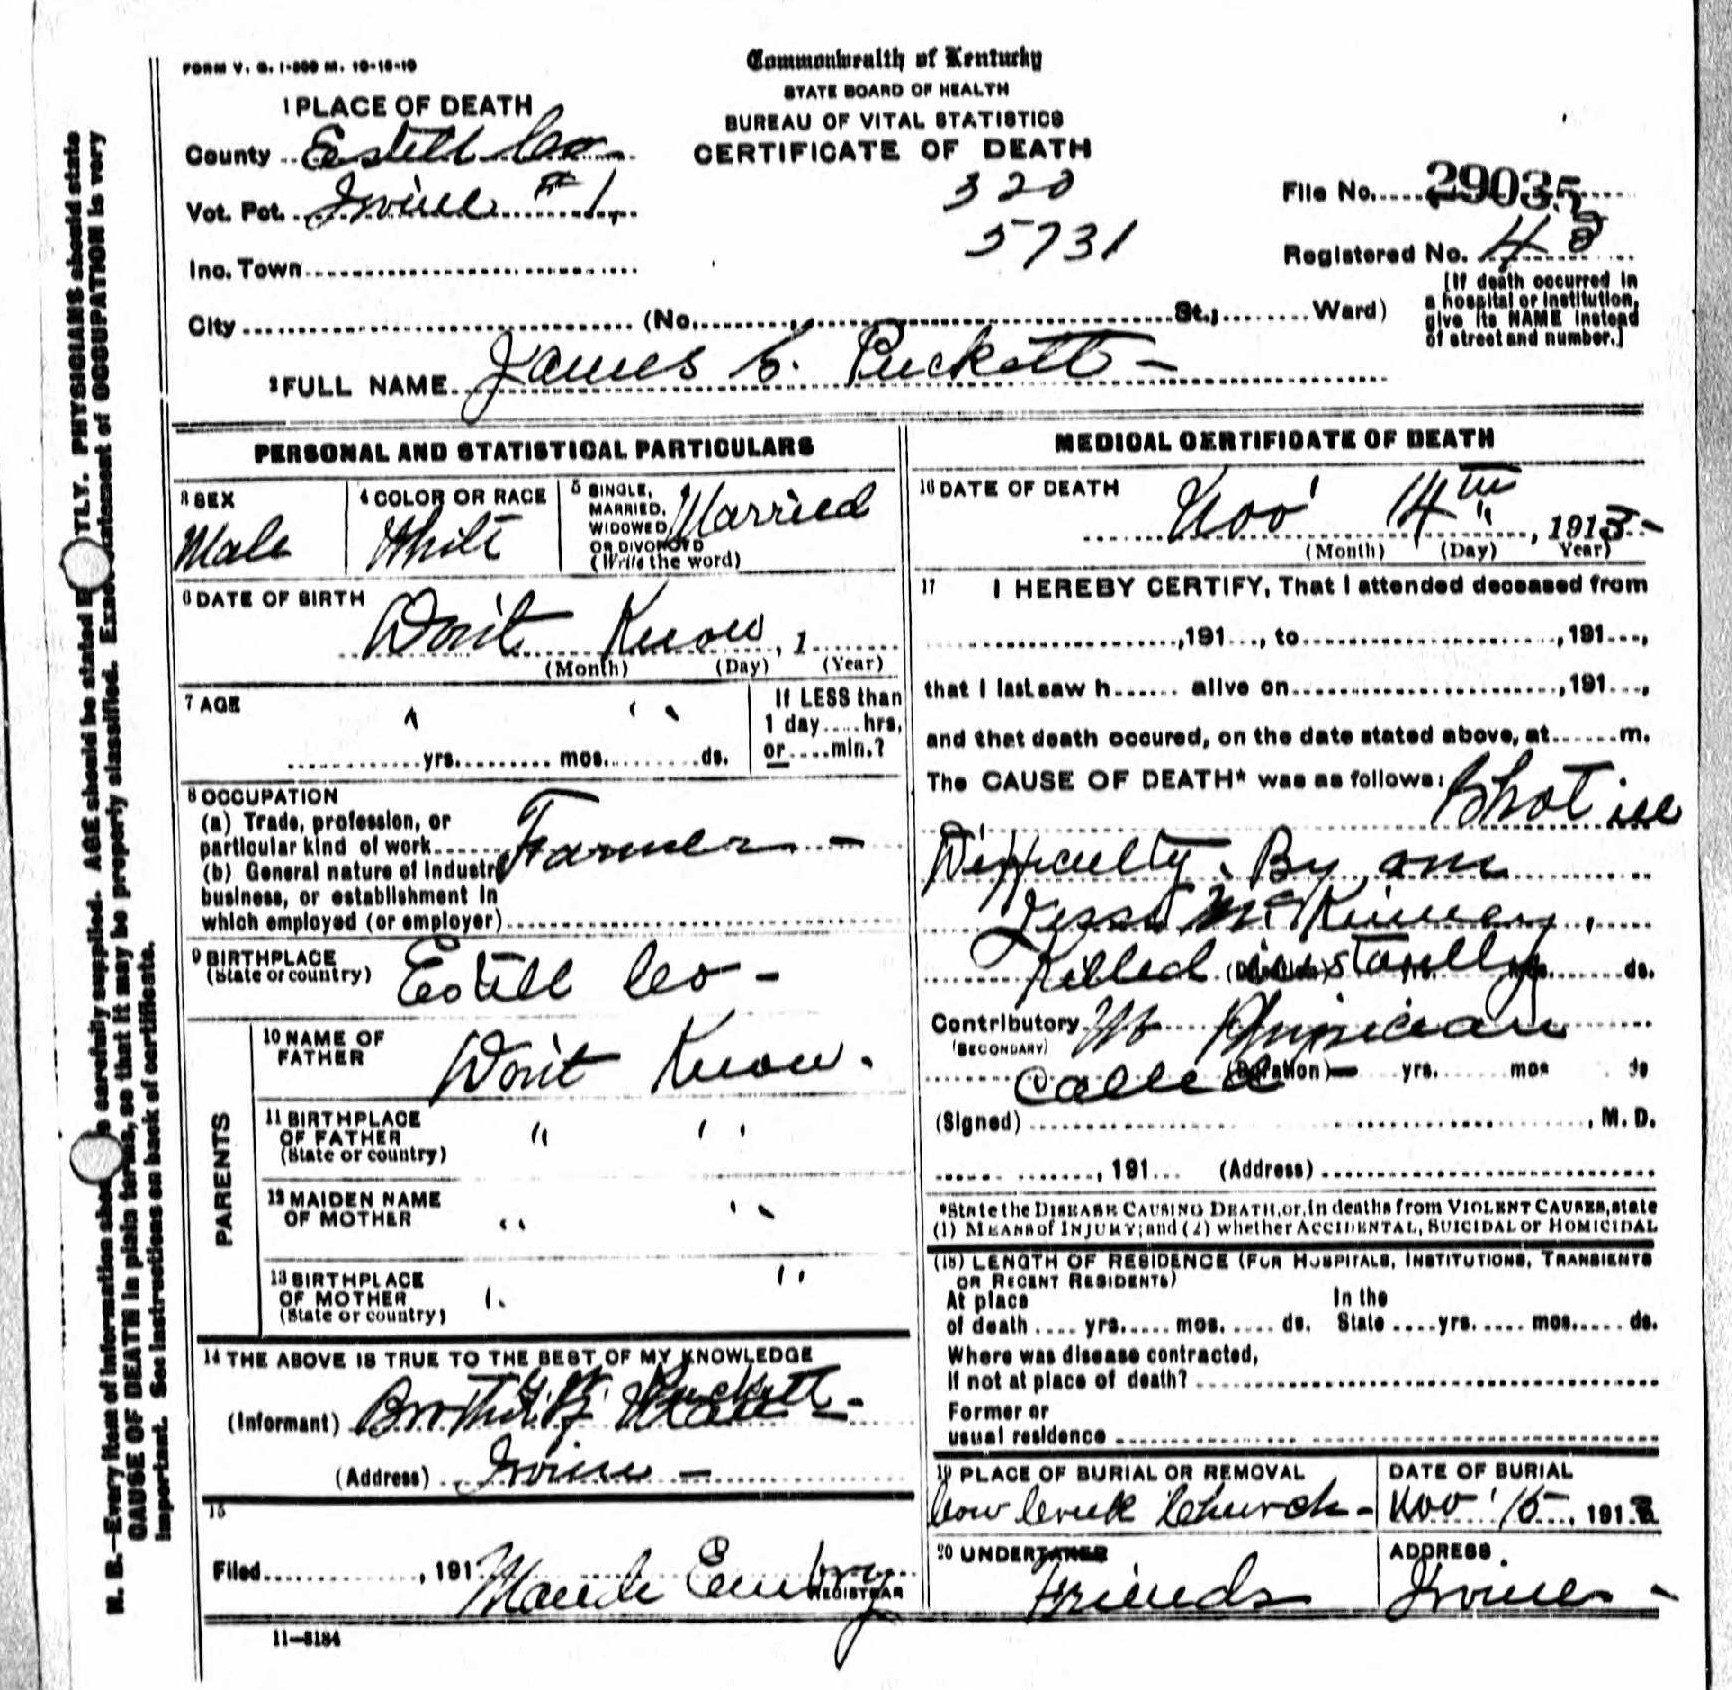 FORM V. S. 1-300 M. 10-18-10
Commonwealth of Kentucky
STATE BOARD OF HEALTH
BUREAU OF VITAL STATISTICS
CERTIFICATE OF DEATH
1 PLACE OF DEATH
County Estell Co
Vot. Pct. Irvine #1
Inc. Town
City (No. St.; Ward)
320
5731
File No. 29035
Registered No. 48
[If death occurred in
a hospital or institution,
give its NAME instead
of street and number.]
2 FULL NAME James C. Puckett -
PERSONAL AND STATISTICAL PARTICULARS
3 SEX
Male
4 COLOR OR RACE
White
5 SINGLE,
MARRIED,
WIDOWED
OR DIVORCED
(Write the word)
Married
6 DATE OF BIRTH
Don't Know, 1
(Month) (Day) (Year)
7 AGE
" "
yrs. mos. ds.
If LESS than
1 day hrs,
or min.?
8 OCCUPATION
(a) Trade, profession, or
particular kind of work Farmer -
(b) General nature of Industry
business, or establishment in
which employed (or employer)
9 BIRTHPLACE
(State or country)
Estill Co -
PARENTS
10 NAME OF
FATHER
Don't Know.
11 BIRTHPLACE
OF FATHER
(State or country)
" "
12 MAIDEN NAME
OF MOTHER
" "
13 BIRTHPLACE
OF MOTHER
(State or country)
" "
14 THE ABOVE IS TRUE TO THE BEST OF MY KNOWLEDGE
(Informant) Brother Puckett -
(Address) Irvine -
15
Filed , 191 Maude Embry
REGISTRAR
11-3184
MEDICAL CERTIFICATE OF DEATH
16 DATE OF DEATH
Nov 14th, 1913-
(Month) (Day) Year)
17 I HEREBY CERTIFY, That I attended deceased from
,191 , to ,191 ,
that I last saw h alive on ,191 ,
and that death occured, on the date stated above, at m.
The CAUSE OF DEATH* was as follows: Shot in
Difficulty. By one
Jesse McKinney,
Killed instantly (Duration) yrs. mos. ds.
Contributory No Physician
(SECONDARY)
Called (Duration) yrs. mos ds
(Signed) , M. D.
, 191 (Address)
*State the DISEASE CAUSING DEATH, or, in deaths from VIOLENT CAUSES, state
(1) MEANS of INJURY; and (2) whether ACCIDENTAL, SUICIDAL or HOMICIDAL
(18) LENGTH OF RESIDENCE (FOR HOSPITALS, INSTITUTIONS, TRANSIENTS
OR RECENT RESIDENTS)
At place In the
of death yrs. mos. ds. State yrs. mos. ds.
Where was disease contracted,
If not at place of death?
Former or
usual residence
19 PLACE OF BURIAL OR REMOVAL
Cow Creek Church -
DATE OF BURIAL
Nov 15, 1913
20 UNDERTAKER
Friends
ADDRESS
Irvine -
N. B.—Every item of information should be carefully supplied. AGE should be stated EXACTLY. PHYSICIANS should state
CAUSE OF DEATH in plain terms, so that it may be properly classified. Exact statement of OCCUPATION is very
important. See instructions on back of certificate.